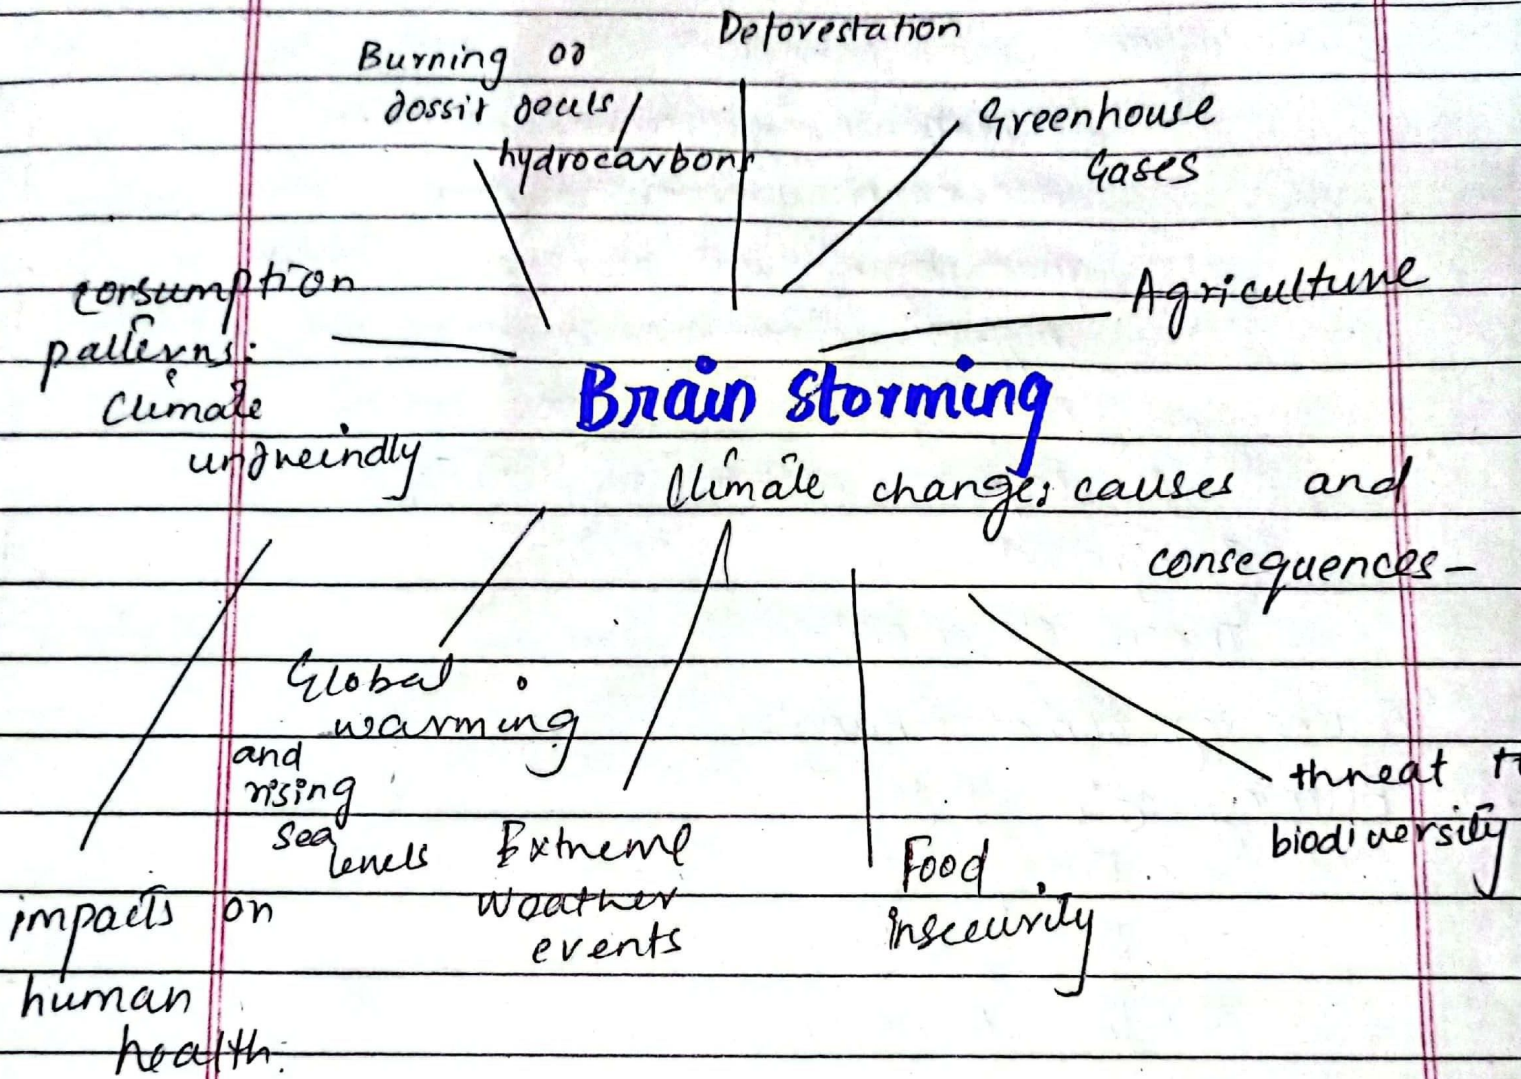 Deforestation
Burning of
fossil feuls/
hydrocarbons
Greenhouse
Gases
Agriculture
consumption
patterns:
climate
unfreindly
Brain storming
Climate change: causes and
consequences-
Global
warming
and
rising
sea
levels
threat
biodiversity
Extreme
weather
events
Food
insecurity
impacts on
human
health.